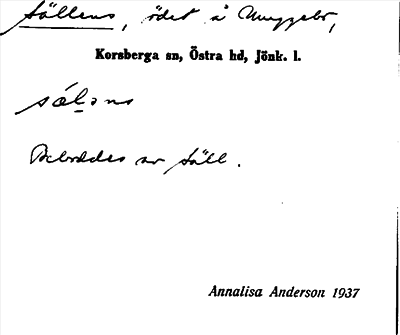 Sällens, ödet å Muggebo,
Korsberga sn, Östra hd, Jönk. l.
sälons
Beboddes av Säll.
Annalisa Anderson 1937